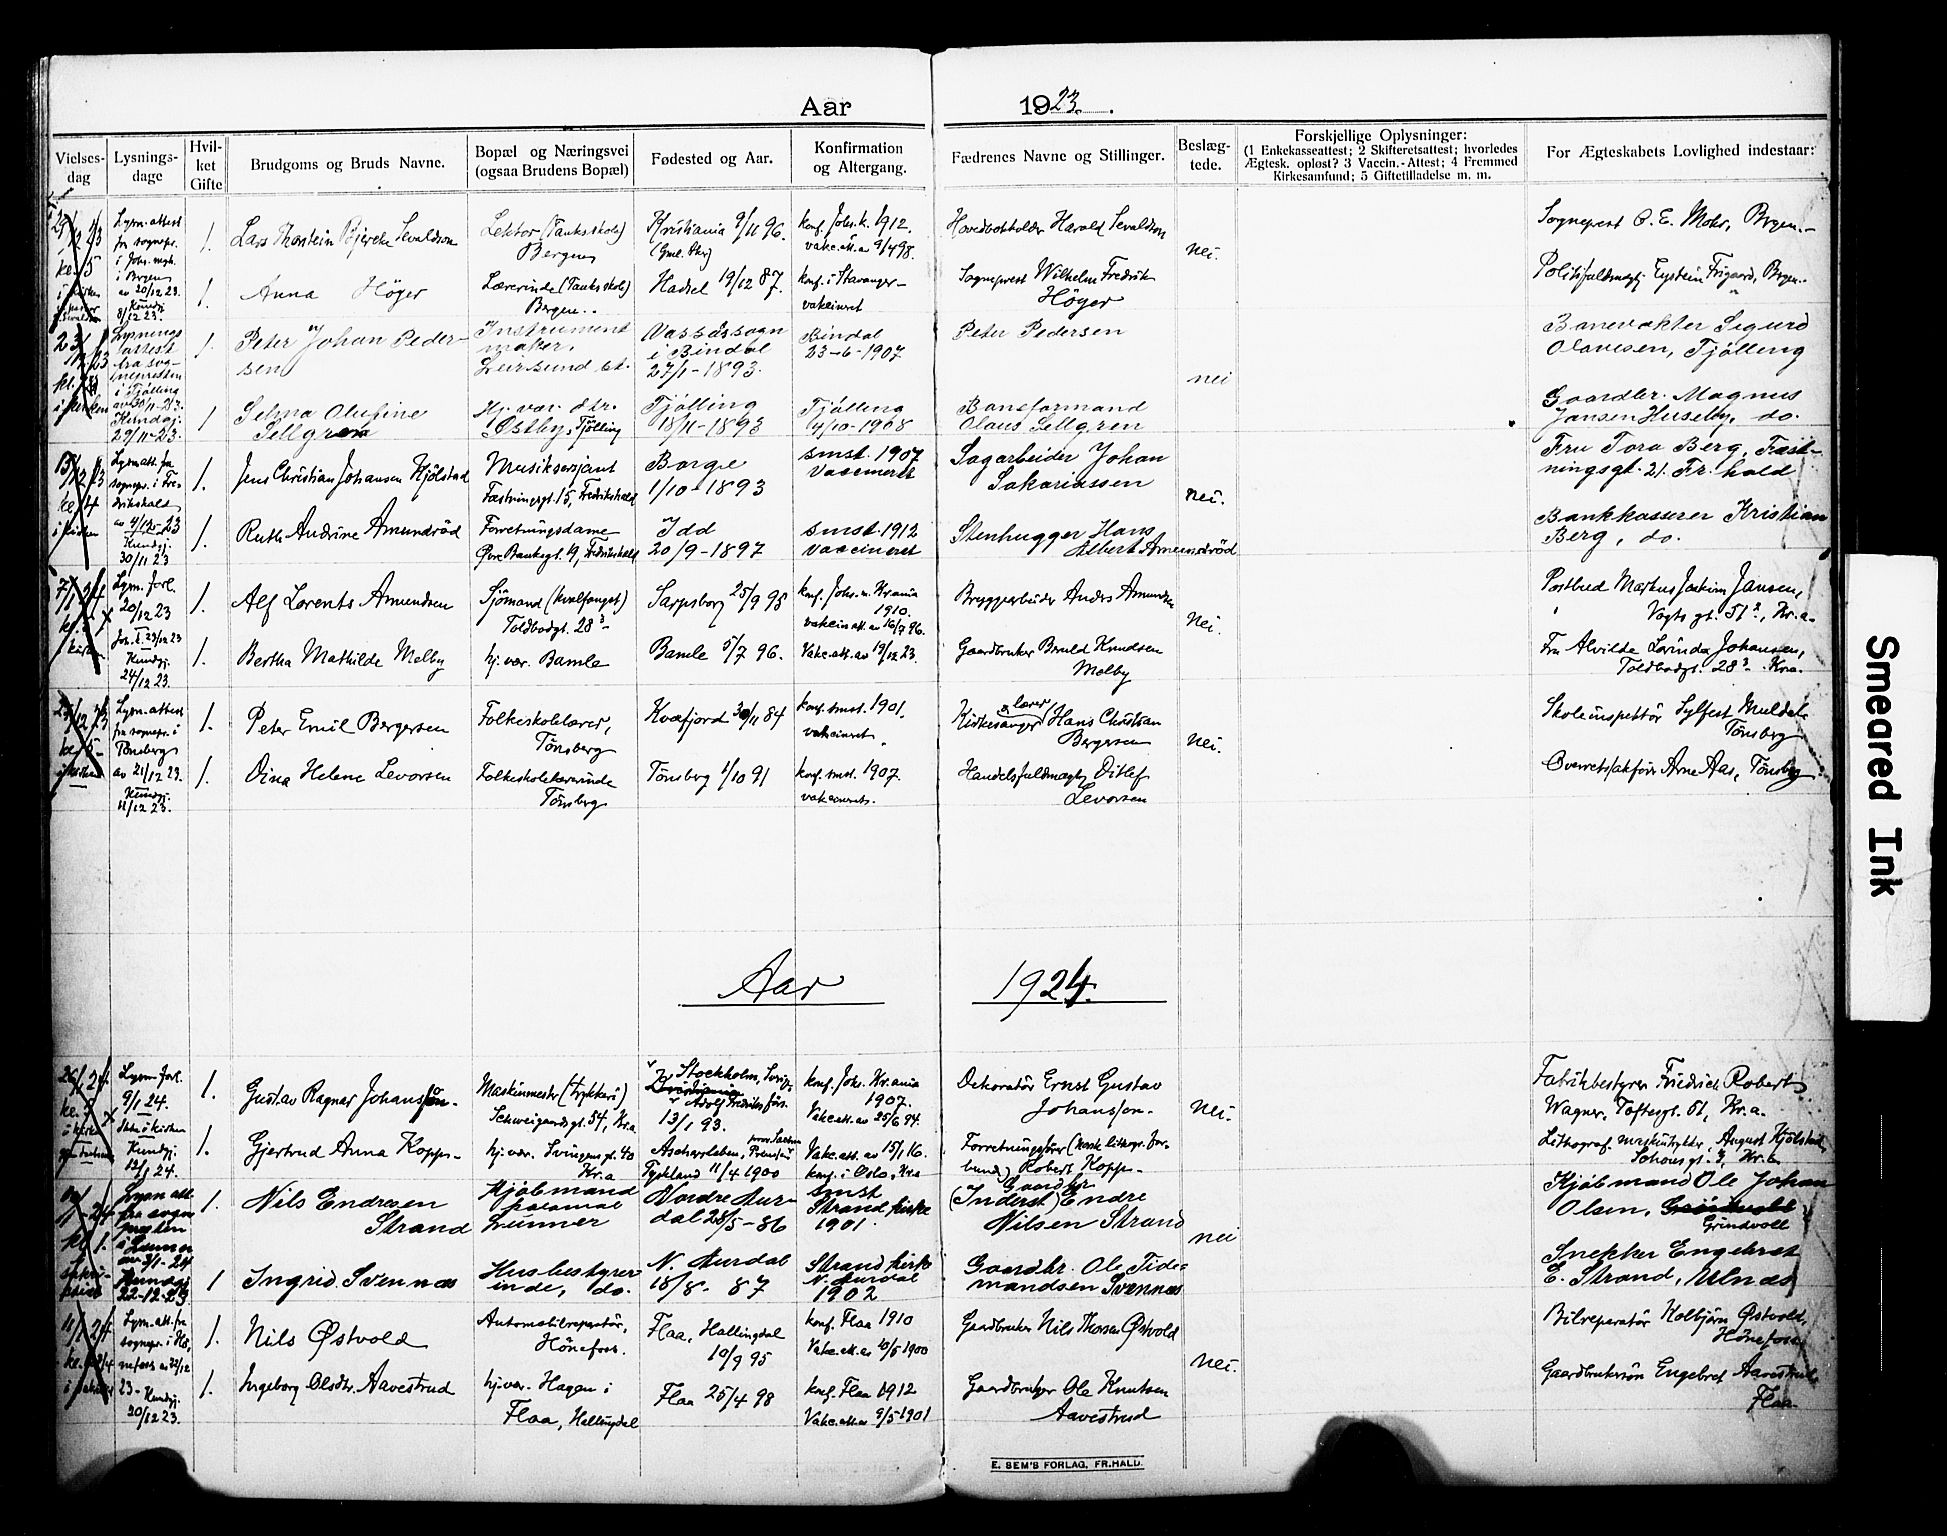 Aar 1923.
Vielses-
dag
Lysnings-
dage
Hvil-
ket
Gifte
Brudgoms og Bruds Navne.
Bopæl og Næringsvei
(ogsaa Brudens Bopæl)
Fødested og Aar.
Konfirmation
og Altergang.
Fædrenes Navne og Stillinger.
Beslæg-
tede.
Forskjellige Oplysninger:
(1 Enkekasseattest; 2 Skifteretsattest; hvorledes
Ægtesk. opløst? 3 Vaccin.-Attest; 4 Fremmed
Kirkesamfund; 5 Giftetilladelse m. m.
For Ægteskabets Lovlighed indestaar:
Lysn. attest
fra sognepr.
i Bergen
av 20/12 23.
Kundgj.
8/12 23.
1.
Lars Thorstein Bjercke Sevaldson
Lektor (Tanks skole)
Bergen
Kristiania 9/11 96.
konf. Johs. k. 1912.
vakc. att. av 9/4 98.
Hovedbokholder Harald Sevaldson
nei.
Sogneprest C. E. Mohr, Bergen.
1.
Anna Höyer
Lærerinde (Tanks skole)
Bergen
Hadsel 19/12 87.
konf. i Stavanger
vakcineret
Sogneprest Wilhelm Fredrik
Höyer
Politifuldmægtig Eystein Frigaard, Bergen.
Lysnings
attest
fra sog-
nepresten
i Tjölling
av 30/11-23.
Kundgj.
29/11-23.
1.
Peter Johan Peder-
sen
Instrument
maker,
Leirsund st.
Vassåssogn
i Bindal
27/1-1893.
Bindal
23-6-1907.
Peter Pedersen
nei
Banevakter Sigurd
Olavesen, Tjölling
1
Selma Olufine
Sellgren
Hj. vær. Str.
Østby, Tjölling
Tjölling
18/11-1893
Tjölling
4/10-1908
Baneformand
Olaus Sellgren
Gaardbr. Magnus
Jansen Huseby, do.
13/12 23
kl. 4
i kirken
Lysn. att. fra
sognepr. i Fre-
drikshald
av 4/12-23
Kundgj.
30/11 23
1.
Jens Christian Johansen Kjölstad
Musiksersjant
Fæstningsgt. 15, Fredrikshald
Borge
1/10-1893
smst. 1907
Vaccineret
Sagarbeider Johan
Sakariassen
nei.
Fru Tora Berg, Fæst-
ningsgt. 21. Fr.hald
1.
Ruth Andrine Amundröd
Forretningsdame
Øvre Bankegt. 19, Fredrikshald
Idd
20/9-1897
smst. 1912
Vaccineret
Stenhugger Hans
Albert Amundsröd
Bankkasserer Kristian
Berg, do.
Lysn. forl.
20/12 23
Kundgj.
24/12 23.
1.
Alf Lorents Amundsen
Sjömand (hvalfanget)
Toldbodgt. 28³
Sarpsborg 25/9 98
konf. Johs. m. Kr.ania
1910.
vakcin att. av 16/7 96.
Bryggearbeider Anders Amundsen
Nei.
Postbud Markus Joakim Jansen,
Vogts gt. 51², Kr.a.
1.
Bertha Mathilde Melby
hj. vær. Bamle
Bamle 5/7 96.
Vakc. att. av 19/12 23.
Gaardbruker Bernld Knudsen
Melby
Fru Alvilde Lovinda Johansen,
Toldbodgt. 28³ Kr.a.
Lysn. attest
fra sognepr. i
Tönsberg
av 21/12 23.
Kundgj.
11/12 23.
1.
Peter Emil Bergersen
Folkeskolelærer,
Tönsberg
Kvæfjord 30/11 84
konf. smst. 1901.
vakcineret
& lærer
Kirkesanger Hans Christian
Bergersen
nei.
Skoleinspektör Sylfest Muldal
Tönsberg
1.
Dina Helene Levorsen
Folkeskolelærerinde
Tönsberg
Tönsberg 1/10 91
konf. smst. 1907.
vakcineret.
Handelsfuldmægtig Ditlef
Levorsen
Overretssakförer Arne Aas, Tönsberg
Aar 1924.
Lysn. forl.
9/1 24.
Kundgj.
12/1 24.
1.
Gustav Ragnar Johansson.
Maskinmester (trykkeri)
Schweigaardsgt. 54, Kr.a
Stockholm, Sverige
Kristiania
Adolf Fredriks förs.
13/1 93.
konf. Johs. Kr.ania
1907.
Vakc. att. av 25/6 94.
Dekoratör Ernst Gustav
Johansson.
Nei.
Fabrikbestyrer Friedrich Robert
Wagner, Toftesgt. 51, Kr.a.
1.
Gjertrud Anna Kopps.
hj. vær. Svingens gt. 40
Kr.a
Aschersleben, Preussen
Tyskland 11/4 1900
Vakc. att. av 15/1 16.
konf. i Oslo, Kr.a
Forretningsförer (norsk litogr. for-
bund) Robert Kopp.
Lithograf maskintrykker August Kjölstad
Schous gt. 3, Kr.a
Lysn att
fra sogne
presten
i Lunner
av 3/1-24
Kundgj
22-12-23
1.
Nils Endresen
Strand
Kjöbmand
Lunner
Nordre Aur-
dal 28/5-86
smst
Strand kirke
1901.
Gaardbr
(Inderst) Endre
Nilsen Strand
nei
Kjöbmand Ole Johan
Olsen, Grindvoll
Grindvoll
1
Ingrid Svennes
Husbestyrer
inde, do.
N. Aurdal
18/8. 87
Strand kirke
N. Aurdal
1902
Gaardbr. Ole Tide-
mandsen Svennes
Snekker Engebret
E. Strand, Ulnes
Lysn. att. fra
sognepr. i Hö-
nefoss av 22/12
23. Kundgj.
20/12 23.
1.
Nils Østvold
Automobilreparatör,
Hönefoss.
Flaa, Hallingdal
10/9 95
konf. Flaa 1910
Vakc. att. av 10/5 1900
Gaardbruker Nils Thorsen Østvold
Nei.
Bilreparatör Kolbjörn Østvold,
Hönefoss
1.
Ingeborg Olsdtr. Aavestrud
hj. vær. Hagen i
Flaa, Hallingdal
Flaa 25/4 98
konf. Flaa 1912
Vakc. att. av 9/5 1901
Gaardbruger Ole Knutsen
Aavestrud
Gaardbrukersön Engebret Aavestrud
Flaa
E. SEM'S FORLAG, FR.HALD.
Smeared Ink